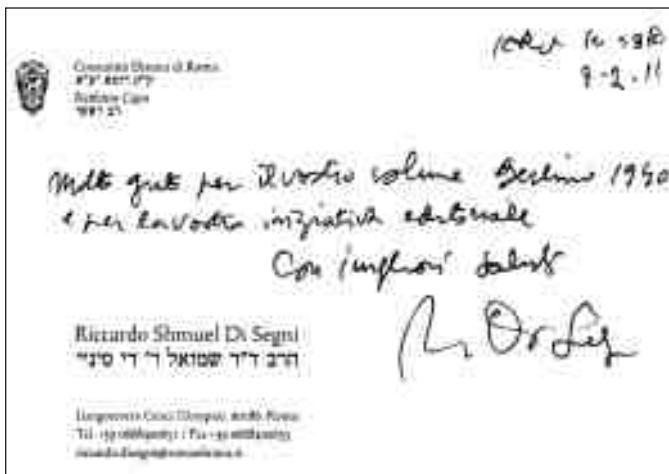 Comunità Ebraica di Roma
ק"ק רומא יע"א
Rabbino Capo
רב ראשי
9-2-11
Molto grato per il vostro volume Berlino 1940
e per la vostra iniziativa editoriale
Con i migliori saluti
Riccardo Shmuel Di Segni
הרב ד"ר שמואל ר' די סיני
Lungotevere Cenci (Tempio), 00186 Roma
Tel. +39
Fax +39